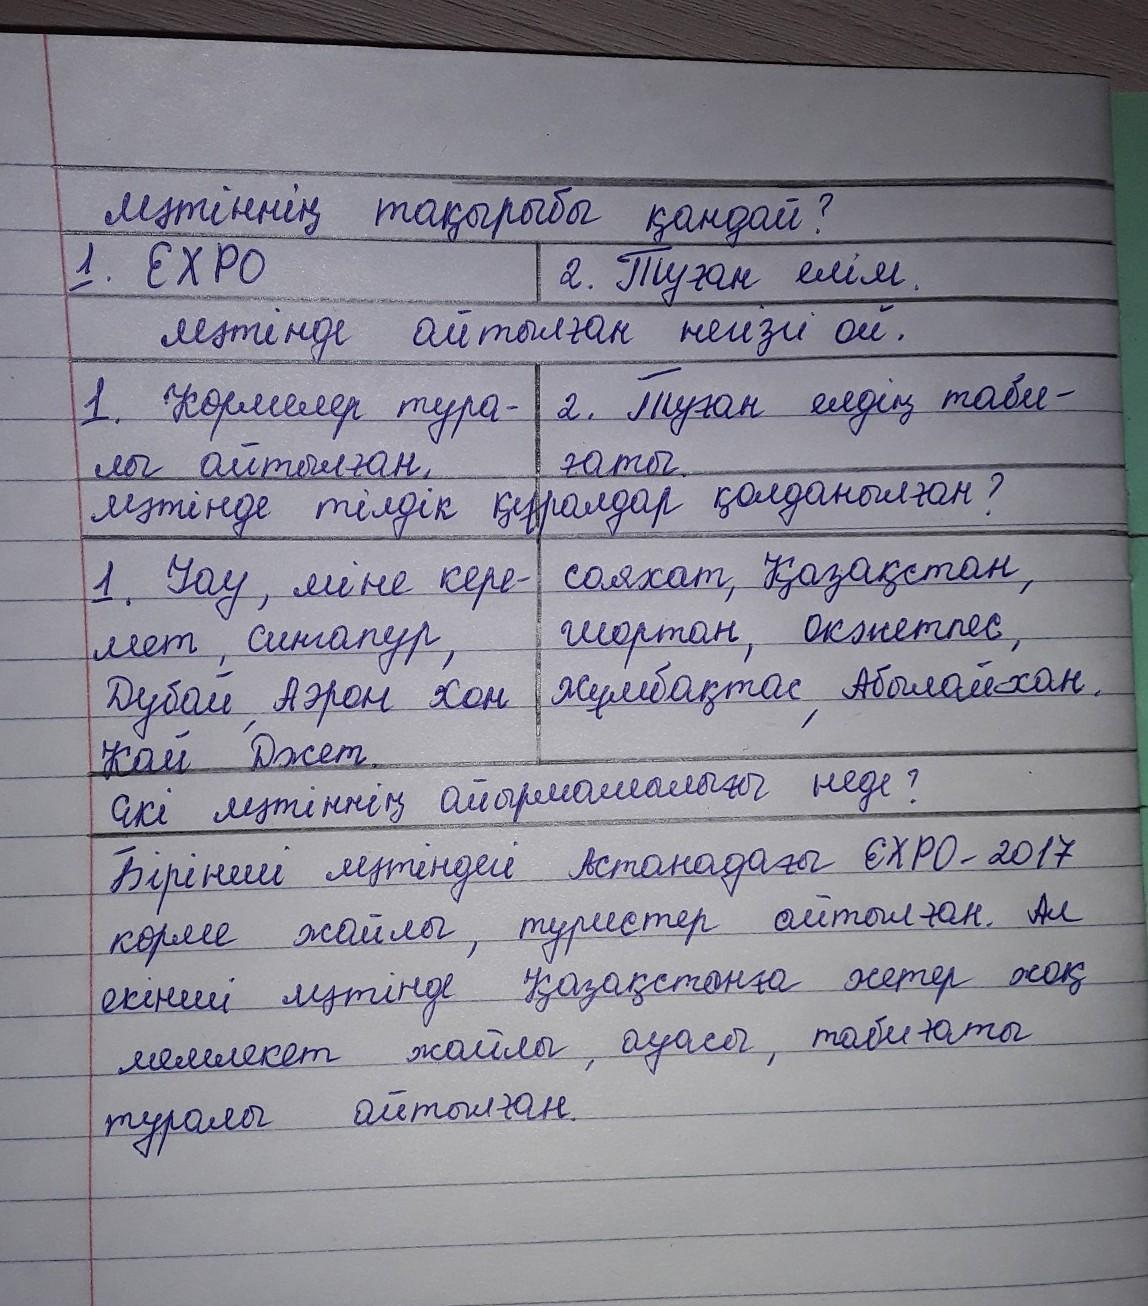 мәтіннің тақырыбы қандай?
1. EXPO 2. Туған елім.
мәтінде айтылған негізі ой.
1. Көрмелер тура- 2. Туған елдің таби-
лы айтылған. ғаты.
мәтінде тілдік құралдар қолданылған?
1. Уау, міне кере- саяхат, Қазақстан,
мет, Сингапур, шортан, оқжетпес,
Дубай, Аэрон Хон жұмбақтас, Абылайхан.
Кай Джет.
Екі мәтіннің айырмашалығы неде?
Бірінші мәтіндегі Астанадағы EXPO-2017
көрме жайлы, туристер айтылған. Ал
екінші мәтінде Қазақстанға жетер жоқ
мемлекет жайлы, ауасы, табиғаты
туралы айтылған.